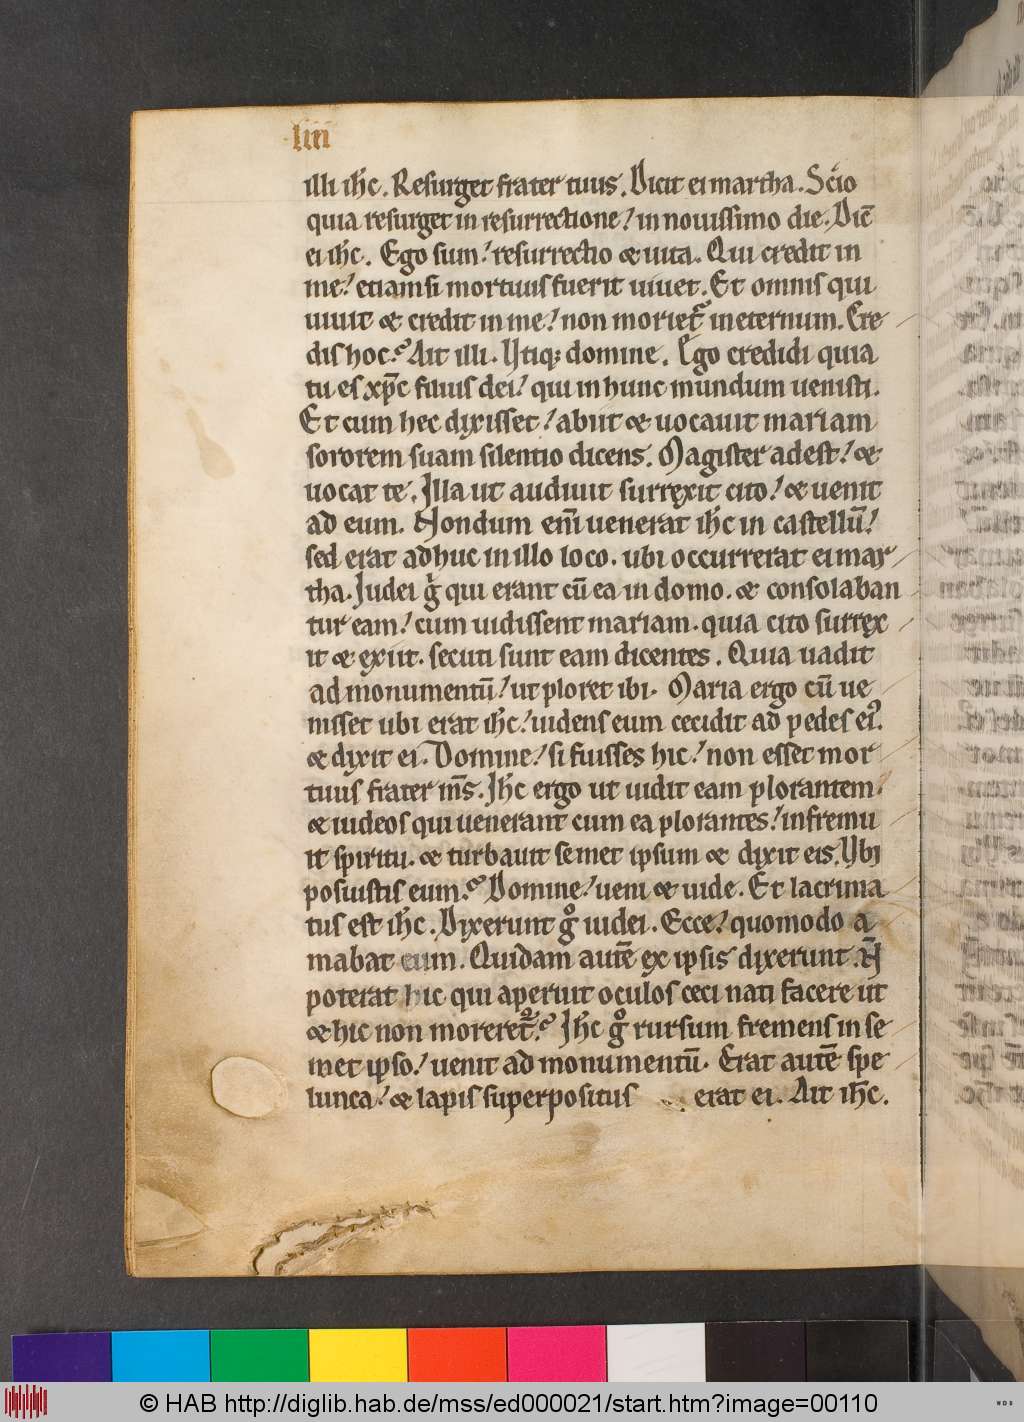 liii
illi ih̄c. Resurget frater tuus. Dicit ei martha. Scio
quia resurget in resurrectione! in nouissimo die. Dic̄
ei ih̄c. Ego sum! resurrectio & uita. Qui credit in
me! etiam si mortuus fuerit uiuet. Et omnis qui
uiuit & credit in me! non moriet᷑ in eternum. Cre
dis hoc? Ait illi. Utiq; domine. Ego credidi quia
tu es xp̄c filius dei! qui in hunc mundum uenisti.
Et cum hec dixisset! abiit & uocauit mariam
sororem suam silentio dicens. Magister adest! &
uocat te. Illa ut audiuit surrexit cito! & uenit
ad eum. Nondum eni̅ uenerat ih̄c in castellū!
sed erat adhuc in illo loco. ubi occurrerat ei mar
tha. Judei gͥ qui erant cū ea in domo. & consolaban
tur eam! cum uidissent mariam. quia cito surrex
it & exiit. secuti sunt eam dicentes. Quia uadit
ad monumentū! ut ploret ibi. Maria ergo cū ue
nisset ubi erat ih̄c! uidens eum cecidit ad pedes ei᾿.
& dixit ei. Domine! si fuisses hic! non esset mor
tuus frater m̅s. Ih̄c ergo ut uidit eam plorantem.
& iudeos qui uenerant cum ea plorantes! infremu
it spiritu. & turbauit semet ipsum & dixit eis. Ubi
posuistis eum? Domine! ueni & uide. Et lacrima
tus est ih̄c. Dixerunt gͦ iudei. Ecce! quomodo a
mabat eum. Quidam autē ex ipsis dixerunt. N̄
poterat hic qui aperuit oculos ceci nati facere ut
& hic non moreret᷑? Ih̄c gͦ rursum fremens in se
met ipso! uenit ad monumentū. Erat autē spe
lunca! & lapis superpositus erat ei. Ait ih̄c.
© HAB http://diglib.hab.de/mss/ed000021/start.htm?image=00110